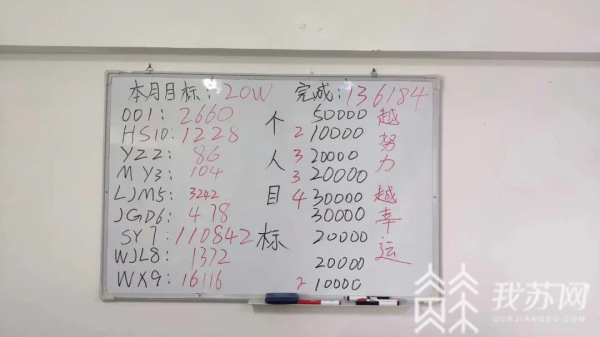 本月目标：20W 完成：136184
001：2660 50000
HS10：1228 2 10000
YZ2：86 3 20000
MY3：104 3 20000
LJM5：3242 4 30000
JGD6：478 30000
SY7：110842 20000
WJL8：1372 20000
WX9：16116 2 10000
个人目标
越努力越幸运
我苏网
OURJIANGSU.COM